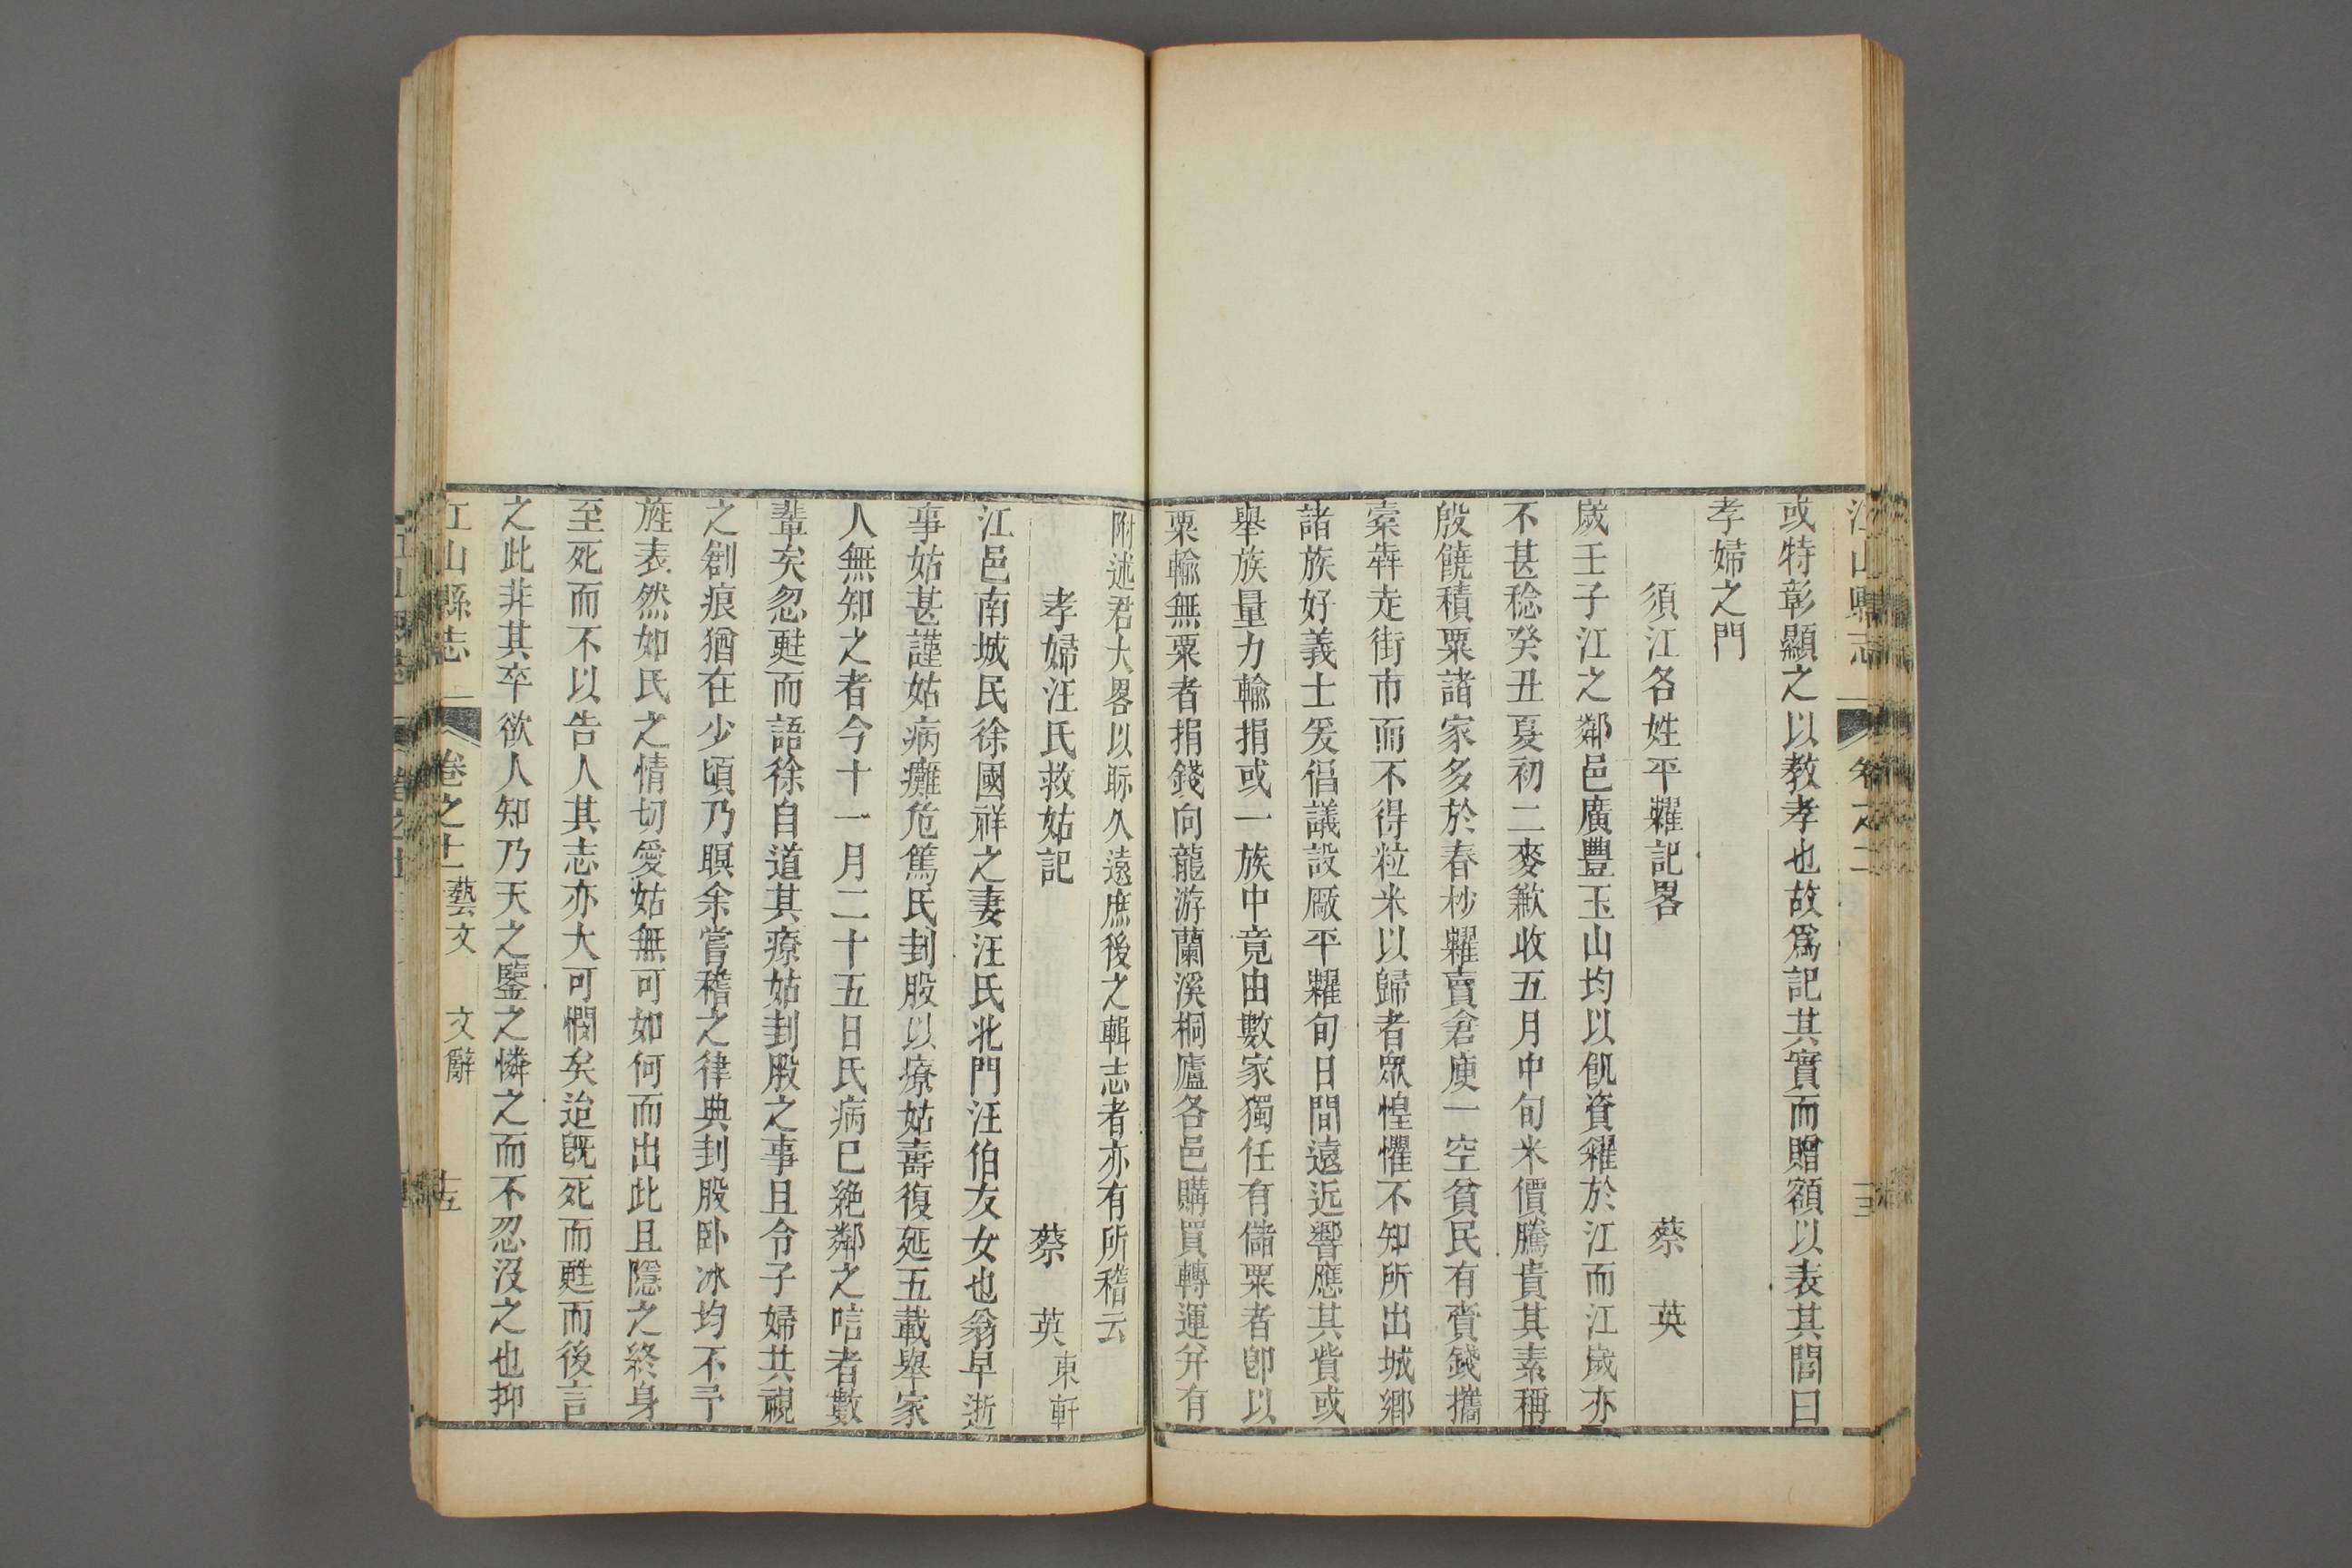 或特彰顯之以教孝也故爲記其實而贈額以表其閭曰
孝婦之門
須江各姓平糶記畧
蔡 英
歲壬子江之鄰邑廣豐玉山均以飢資糴於江而江歲亦
不甚稔癸丑夏初二麥歉收五月中旬米價騰貴其素稱
殷饒積粟諸家多於春杪糶賣倉庾一空貧民有賫錢攜
橐犇走街市而不得粒米以歸者眾惶懼不知所出城鄉
諸族好義士爰倡議設厰平糶旬日間遠近響應其貲或
舉族量力輸捐或一族中竟由數家獨任有儲粟者卽以
粟輸無粟者捐錢向龍游蘭溪桐廬各邑購買轉運并有
附述君大畧以眎久遠庶後之輯志者亦有所稽云
孝婦汪氏救姑記
蔡 英 東軒
江邑南城民徐國祥之妻汪氏北門汪伯友女也翁早逝
事姑甚謹姑病癱危篤氏刲股以療姑壽復延五載舉家
人無知之者今十一月二十五日氏病巳絶鄰之唁者數
輩矣忽甦而語徐自道其療姑刲股之事且令子婦共視
之創痕猶在少頃乃瞑余嘗稽之律典刲股卧冰均不予
旌表然如氏之情切愛姑無可如何而出此且隱之終身
至死而不以告人其志亦大可憫矣迨旣死而甦而後言
之此非其卒欲人知乃天之鑒之憐之而不忍沒之也抑
江山縣志 卷之十一 藝文 文辭